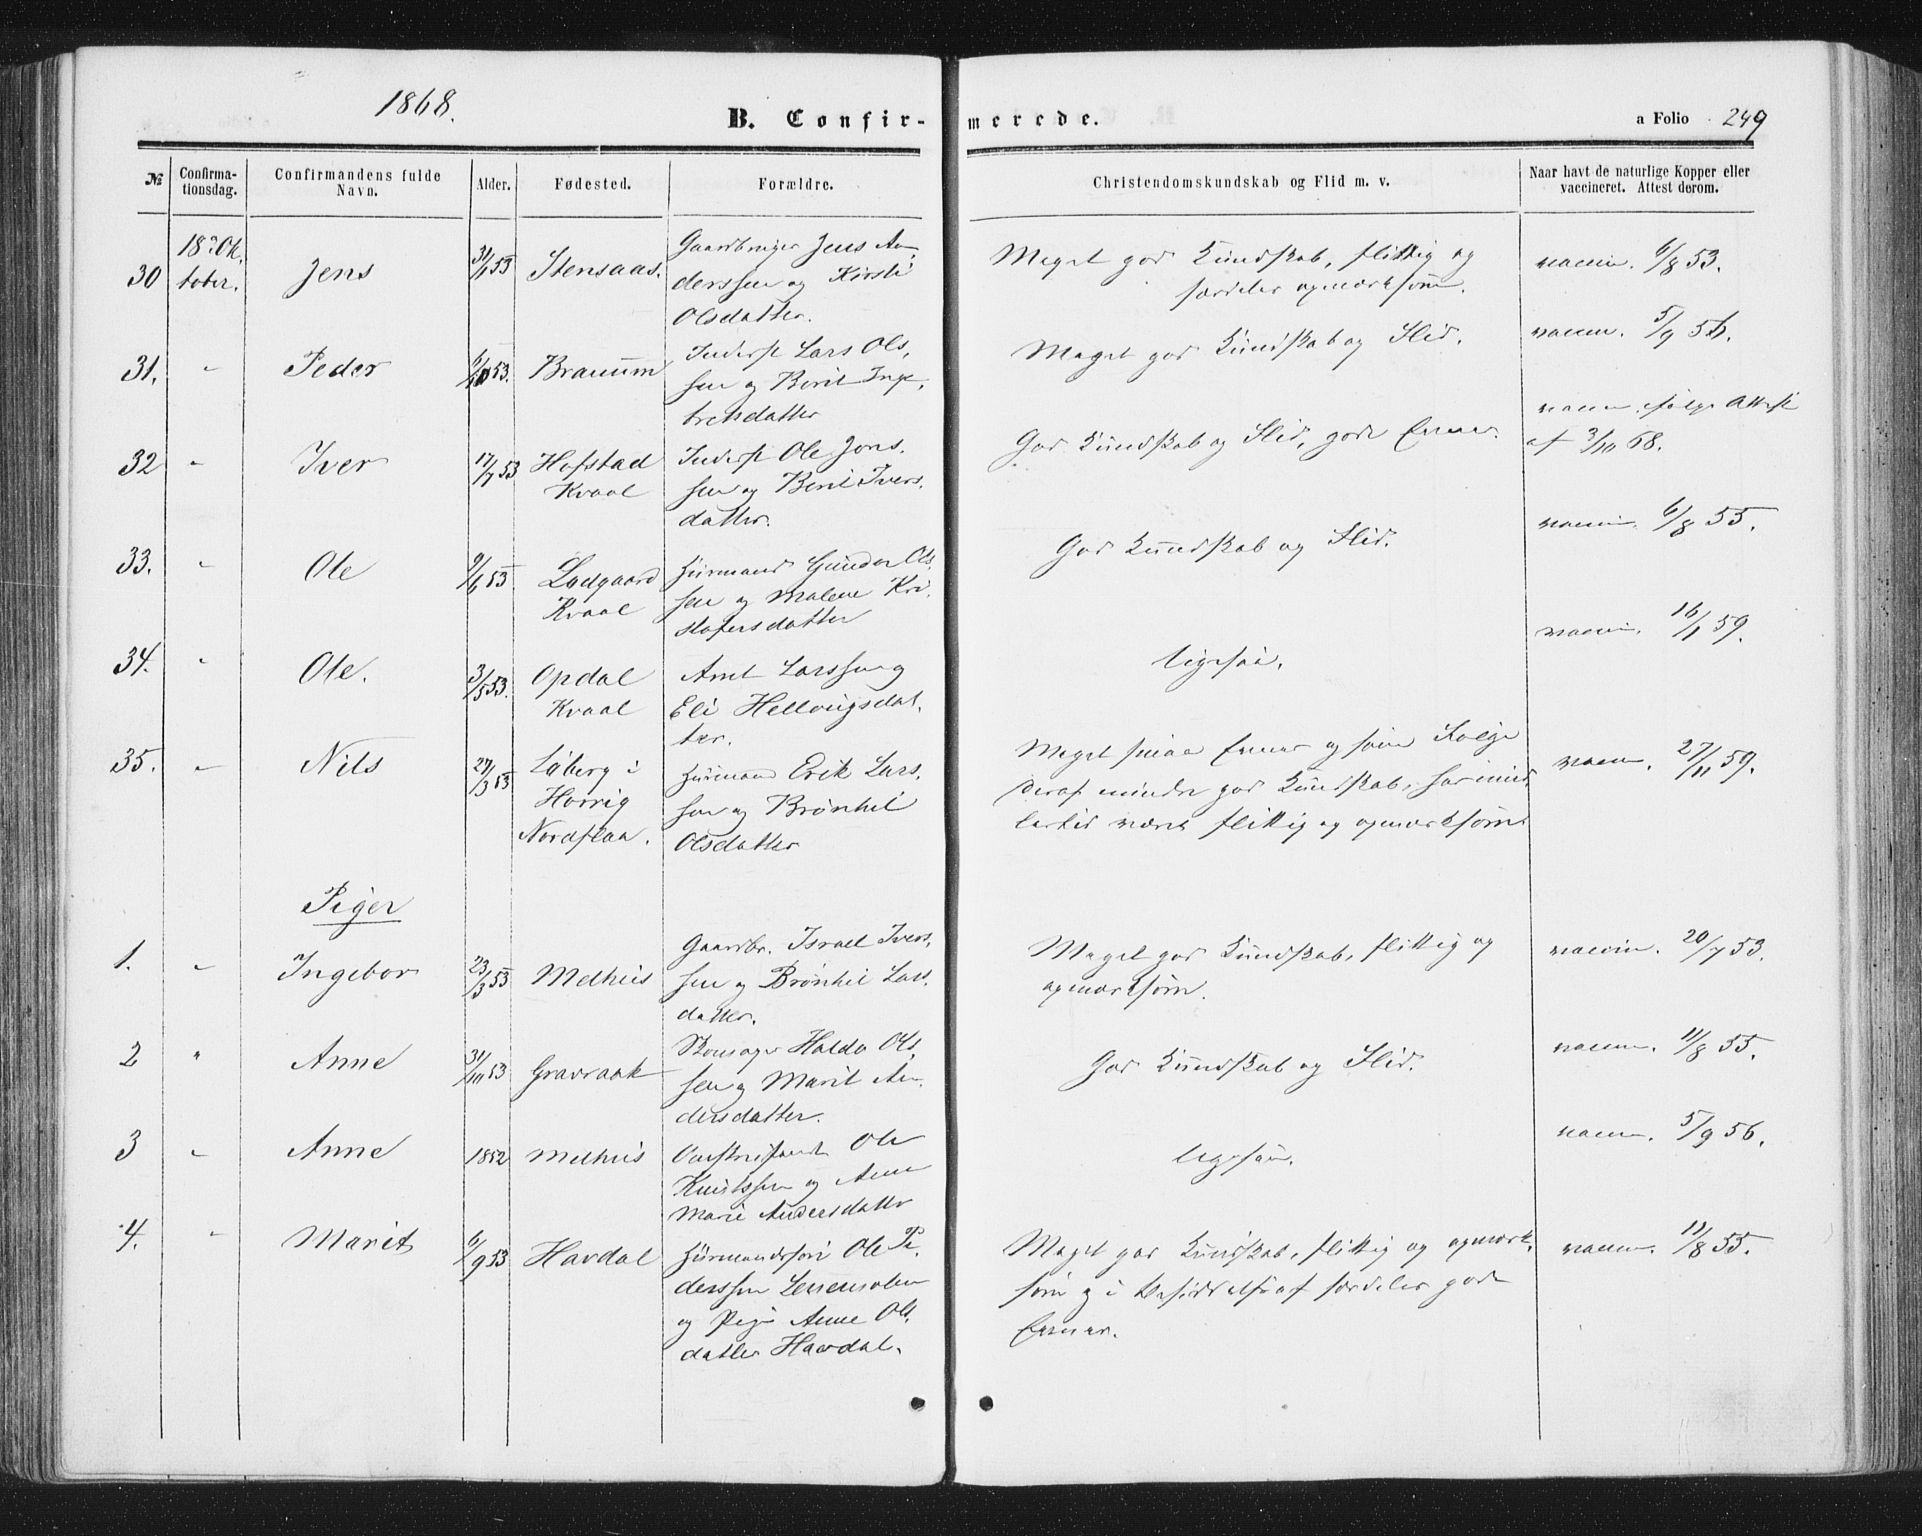 1868.
B. Confir-
merede.
a Folio 249
№
Confirma-
tionsdag.
Confirmandens fulde
Navn.
Alder.
Fødested.
Forældre.
Christendomskundskab og Flid m. v.
Naar havt de naturlige Kopper eller
vaccineret. Attest derom.
30
18de Ok,
tober.
Jens
31/1 53
Stensaas.
Gaardbruger Jens An,
derssen og Kirsti
Olsdatter.
Meget god Kundskab, flittig og
særdeles opmærksom.
vaccin. 6/8 53.
31.
"
Peder
6/10 53.
Braaum
Inderst Lars Ols,
sen og Berit Inge,
bretsdatter
Meget god Kundskab og Flid.
vaccin. 5/9 56.
32
"
Iver
17/7 53
Hofstad
Kvaal
Inderst Ole Jons,
sen og Berit Ivers,
datter.
God Kundskab og Flid, gode Evner.
vaccin. ifølge Attest
af 3/10 68.
33.
"
Ole
9/6 53
Ladgaard
Kvaal
Huusmand Gunder Ols,
sen og Malene Kri,
stofersdatter
God Kundskab og Flid.
vaccin. 6/8 55.
34.
"
Ole.
3/5 53.
Opdal
Kvaal
Arnt Larssen og
Eli Hellvigsdat,
ter.
ligesaa.
vaccin. 16/1 59.
35.
"
Nils
27/3 53
Laaberg i
Horrig
Nordflaa.
Huusmand Erik Lars,
sen og Brønhil
Olsdatter
Meget smaa Evner og som Følge
deraf mindre god Kundskab, har imid,
lertid været flittig og opmærksom
vaccin. 27/11 59.
Piger
1.
"
Ingebor
23/3 53
Melhuus
Gaardbr. Israel Ivers,
sen og Brønhil Lars,
datter.
Meget god Kundskab, flittig og
opmærksom.
vaccin. 20/7 53.
2
"
Anne
31/10 53
Gravraak
Haldo Ols,
sen og Marit An,
dersdatter.
God Kundskab og Flid.
vaccin. 11/8 55.
3
"
Anne
1852
Melhuus
Ole
Knutssen og Ane
Marie Andersdatter
ligesaa.
vaccin. 5/9 56.
4.
"
Marit
6/9 53
Havdal
Huusmandssøn Ole Pe,
derssen
og Pige Anne Ols,
datter Havdal.
Meget god Kundskab, flittig og opmærk,
som og i Besiddelse af særdeles gode
Evner.
vaccin. 11/8 55.